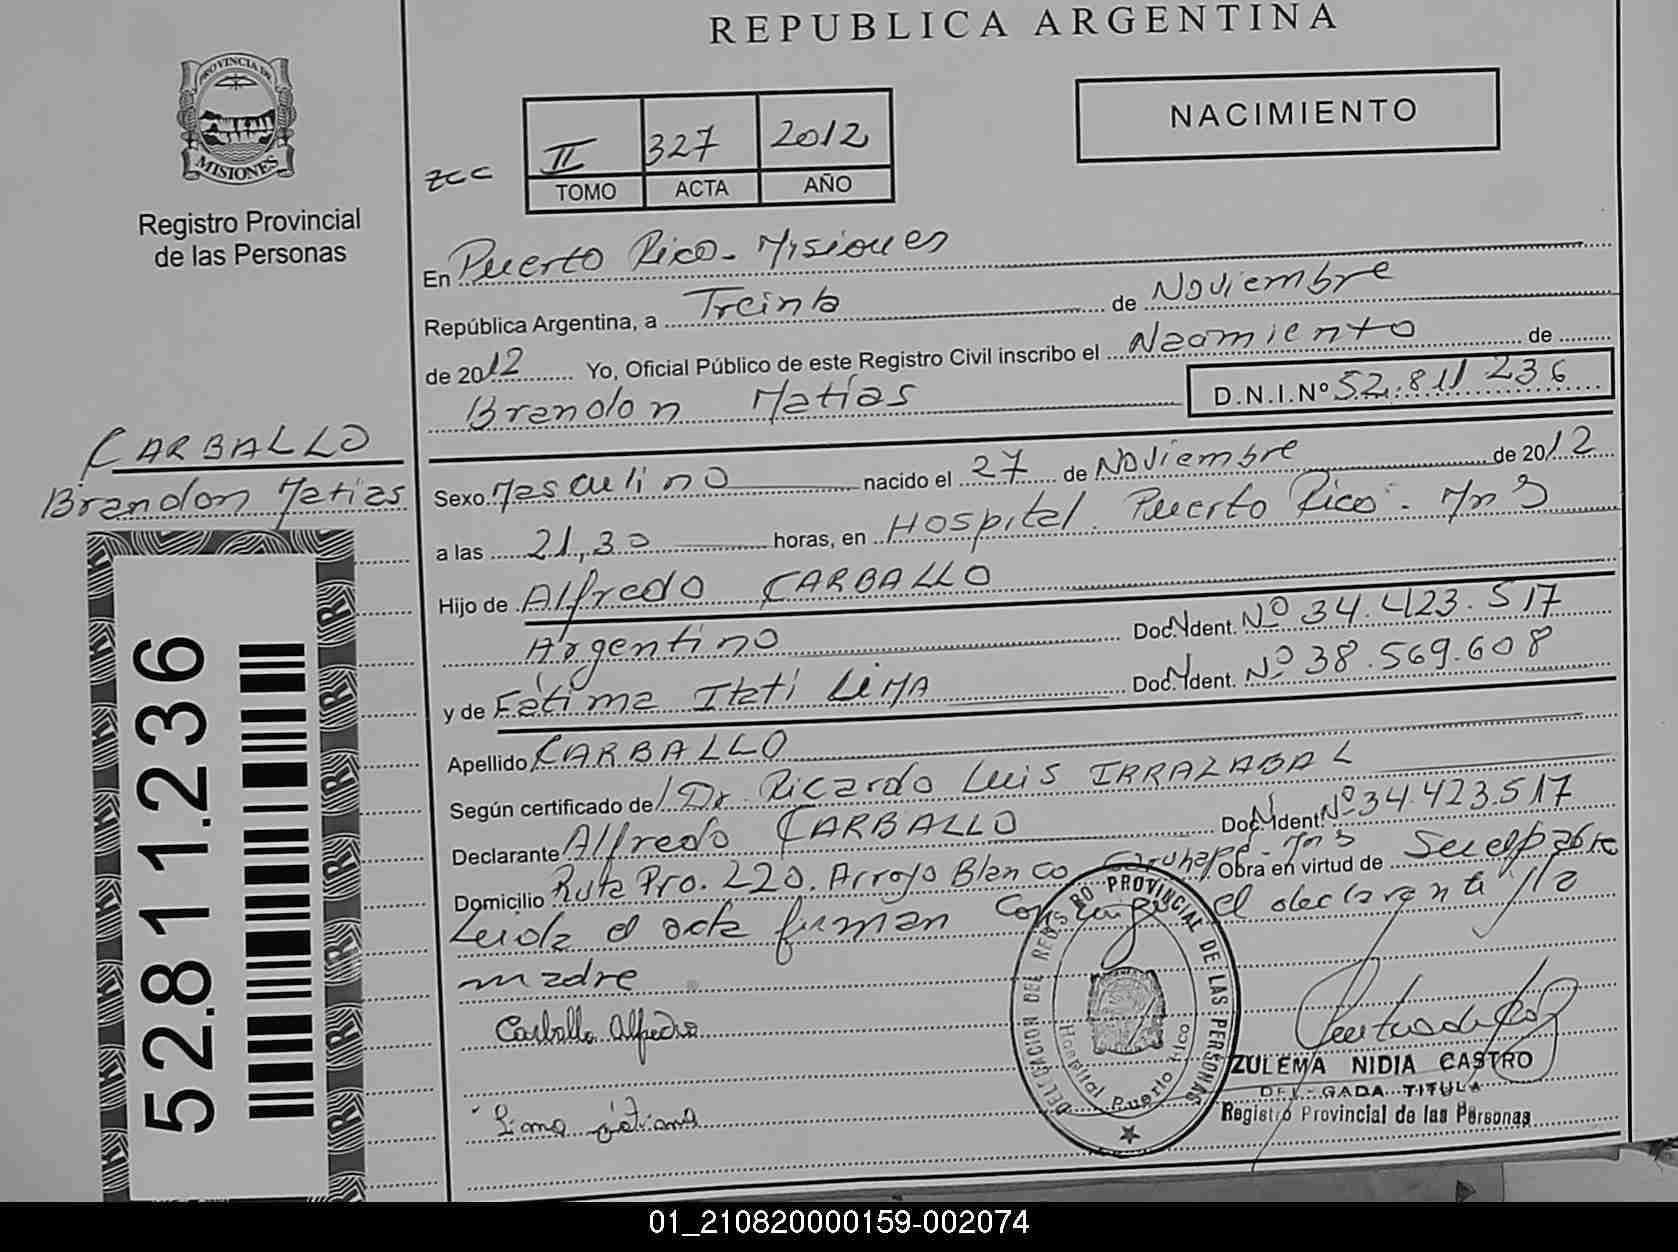 REPUBLICA ARGENTINA
PROVINCIA DE
MISIONES
Registro Provincial
de las Personas
NACIMIENTO
zcc
II 327 2012
TOMO ACTA AÑO
En Puerto Rico - Misiones
República Argentina, a Treinta de Noviembre
de 2012 Yo, Oficial Público de este Registro Civil inscribo el Nacimiento de
Brandon Matías D.N.I.Nº 52.811.236
CARBALLO
Brandon Matias
Sexo Masculino nacido el 27 de Noviembre de 2012
a las 21,30 horas, en Hospital Puerto Rico - Mns
Hijo de Alfredo CARBALLO
Argentino Doc. Ident. Nº 34.423.517
y de Fátima Itatí LIMA Doc. Ident. Nº 38.569.608
Apellido CARBALLO
Según certificado de Dr. Ricardo Luis IRRAZABAL
Declarante Alfredo CARBALLO Doc. Ident. Nº 34.423.517
Domicilio Ruta Pro. 220. Arroyo Blanco Mns Obra en virtud de
Leida el acta firman conmigo el declarante y la
madre
Carballo Alfredo
Lima fátima
DELEGACION DEL REGISTRO PROVINCIAL DE LAS PERSONAS
Hospital Puerto Rico
ZULEMA NIDIA CASTRO
DELEGADA TITULAR
Registro Provincial de las Personas
52.811.236
01_210820000159-002074